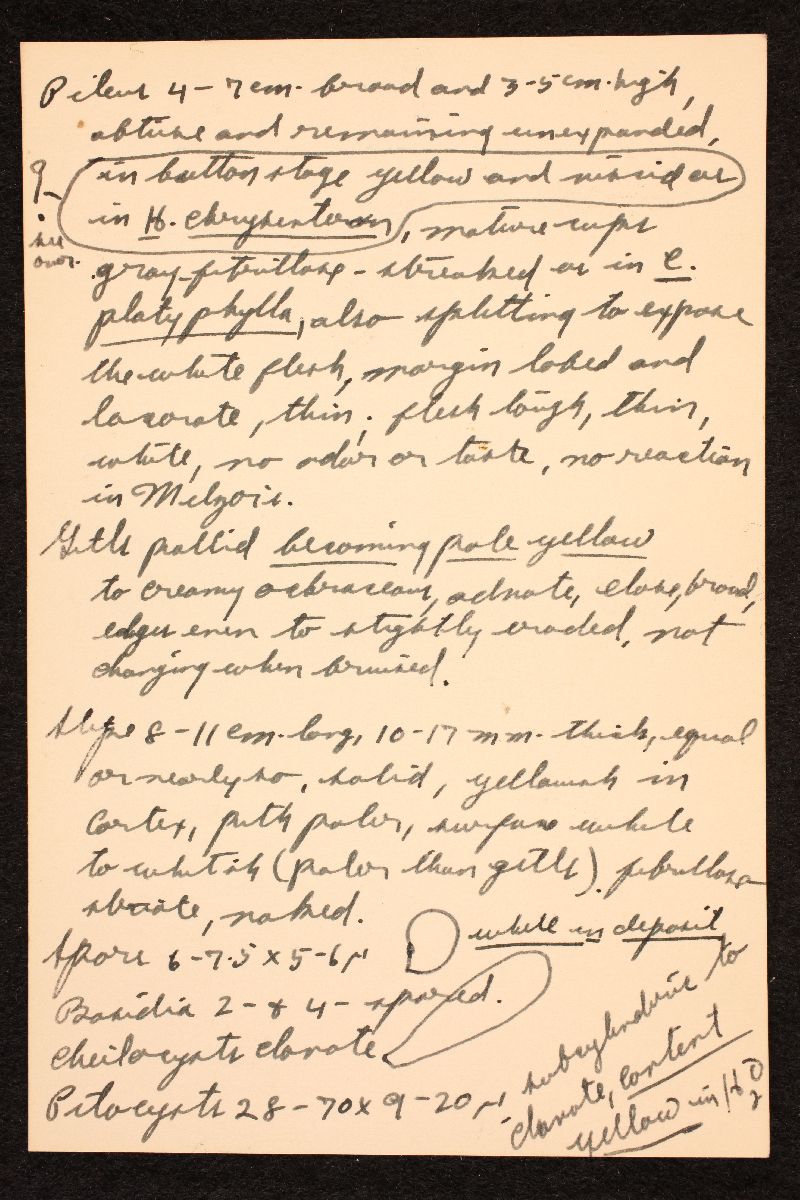 Pileus 4-7 cm. broad and 3-5 cm. high,
obtuse and remaining unexpanded,
? in button stage yellow and viscid as
in H. chrysenteron, mature caps
see
over.
gray fibrillose-streaked as in C.
platyphylla, also splitting to expose
the white flesh, margin lobed and
lacerate, thin; flesh tough, thin,
white, no odor or taste, no reaction
in Melzer's.
Gills pallid becoming pale yellow
to creamy ochraceous, adnate, close, broad,
edges even to slightly eroded, not
changing when bruised.
Stipe 8-11 cm. long, 10-17 mm. thick, equal
or nearly so, solid, yellowish in
cortex, pith paler, surface white
to whitish (paler than gills), fibrillose
striate, naked.
Spores 6-7.5 x 5-6 µ white in deposit
Basidia 2- & 4-spored.
Cheilocysts clavate
Pilocysts 28-70 x 9-20 µ subcylindric to
clavate, content
yellow in H2O